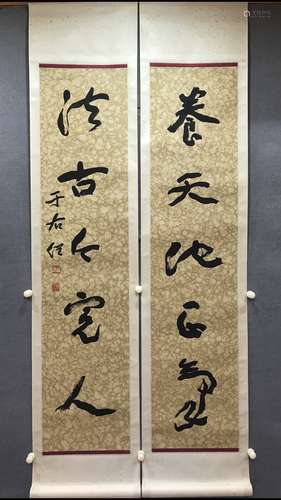 養天地正氣
法古今完人
于右任